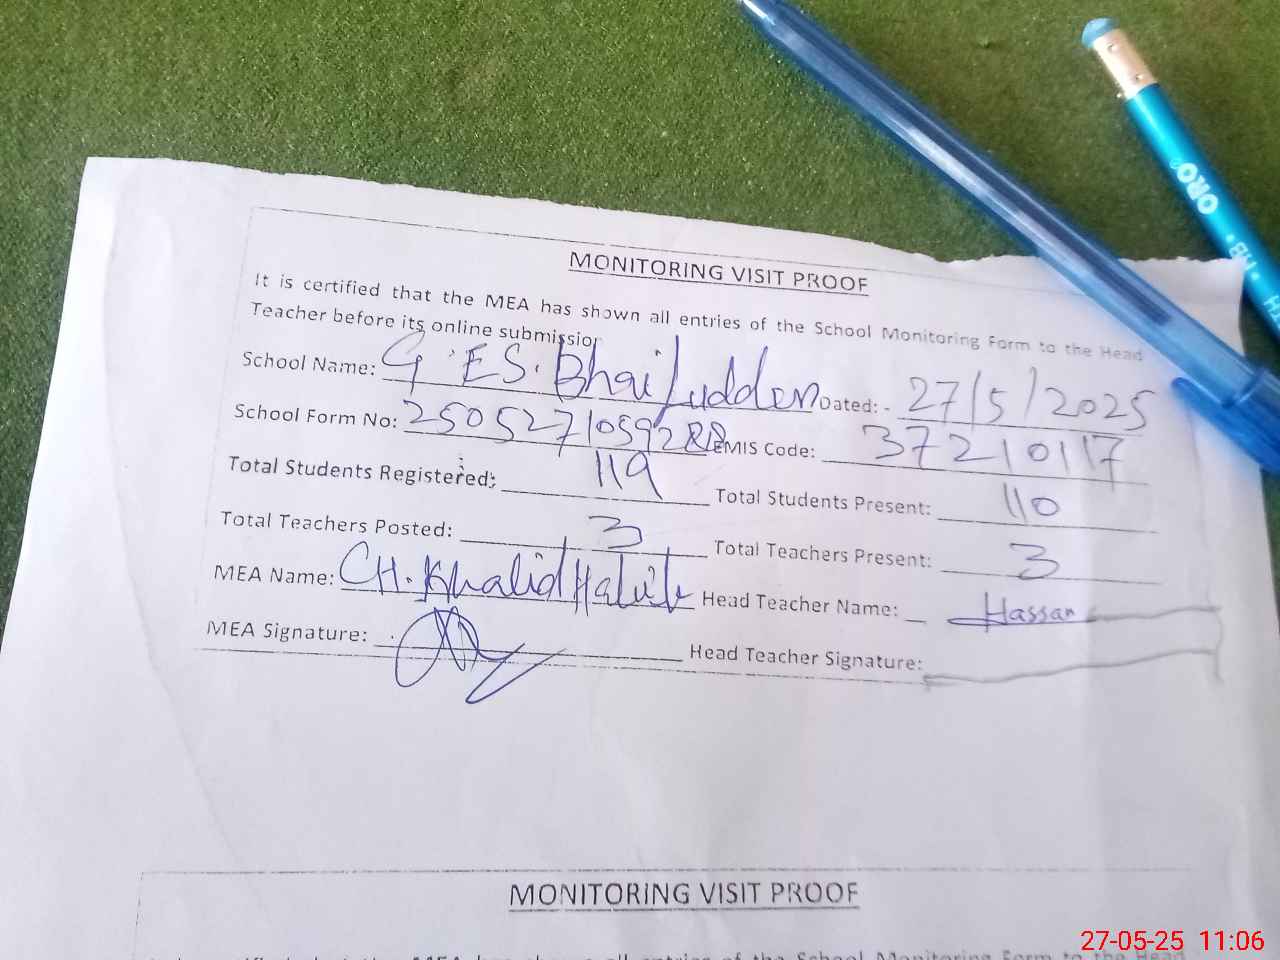 MONITORING VISIT PROOF
It is certified that the MEA has shown all entries of the School Monitoring Form to the Head
Teacher before its online submission
School Name: G.ES. Dated: - 27/5/2025
School Form No: EMIS Code: 37210117
Total Students Registered: 119 Total Students Present: 110
Total Teachers Posted: 3 Total Teachers Present: 3
MEA Name: CH. Khalid Habib Head Teacher Name: Hassan
MEA Signature: Head Teacher Signature:
MONITORING VISIT PROOF
MEA has shown all entries of the School Monitoring Form to the Head
ORO
HB
27-05-25 11:06